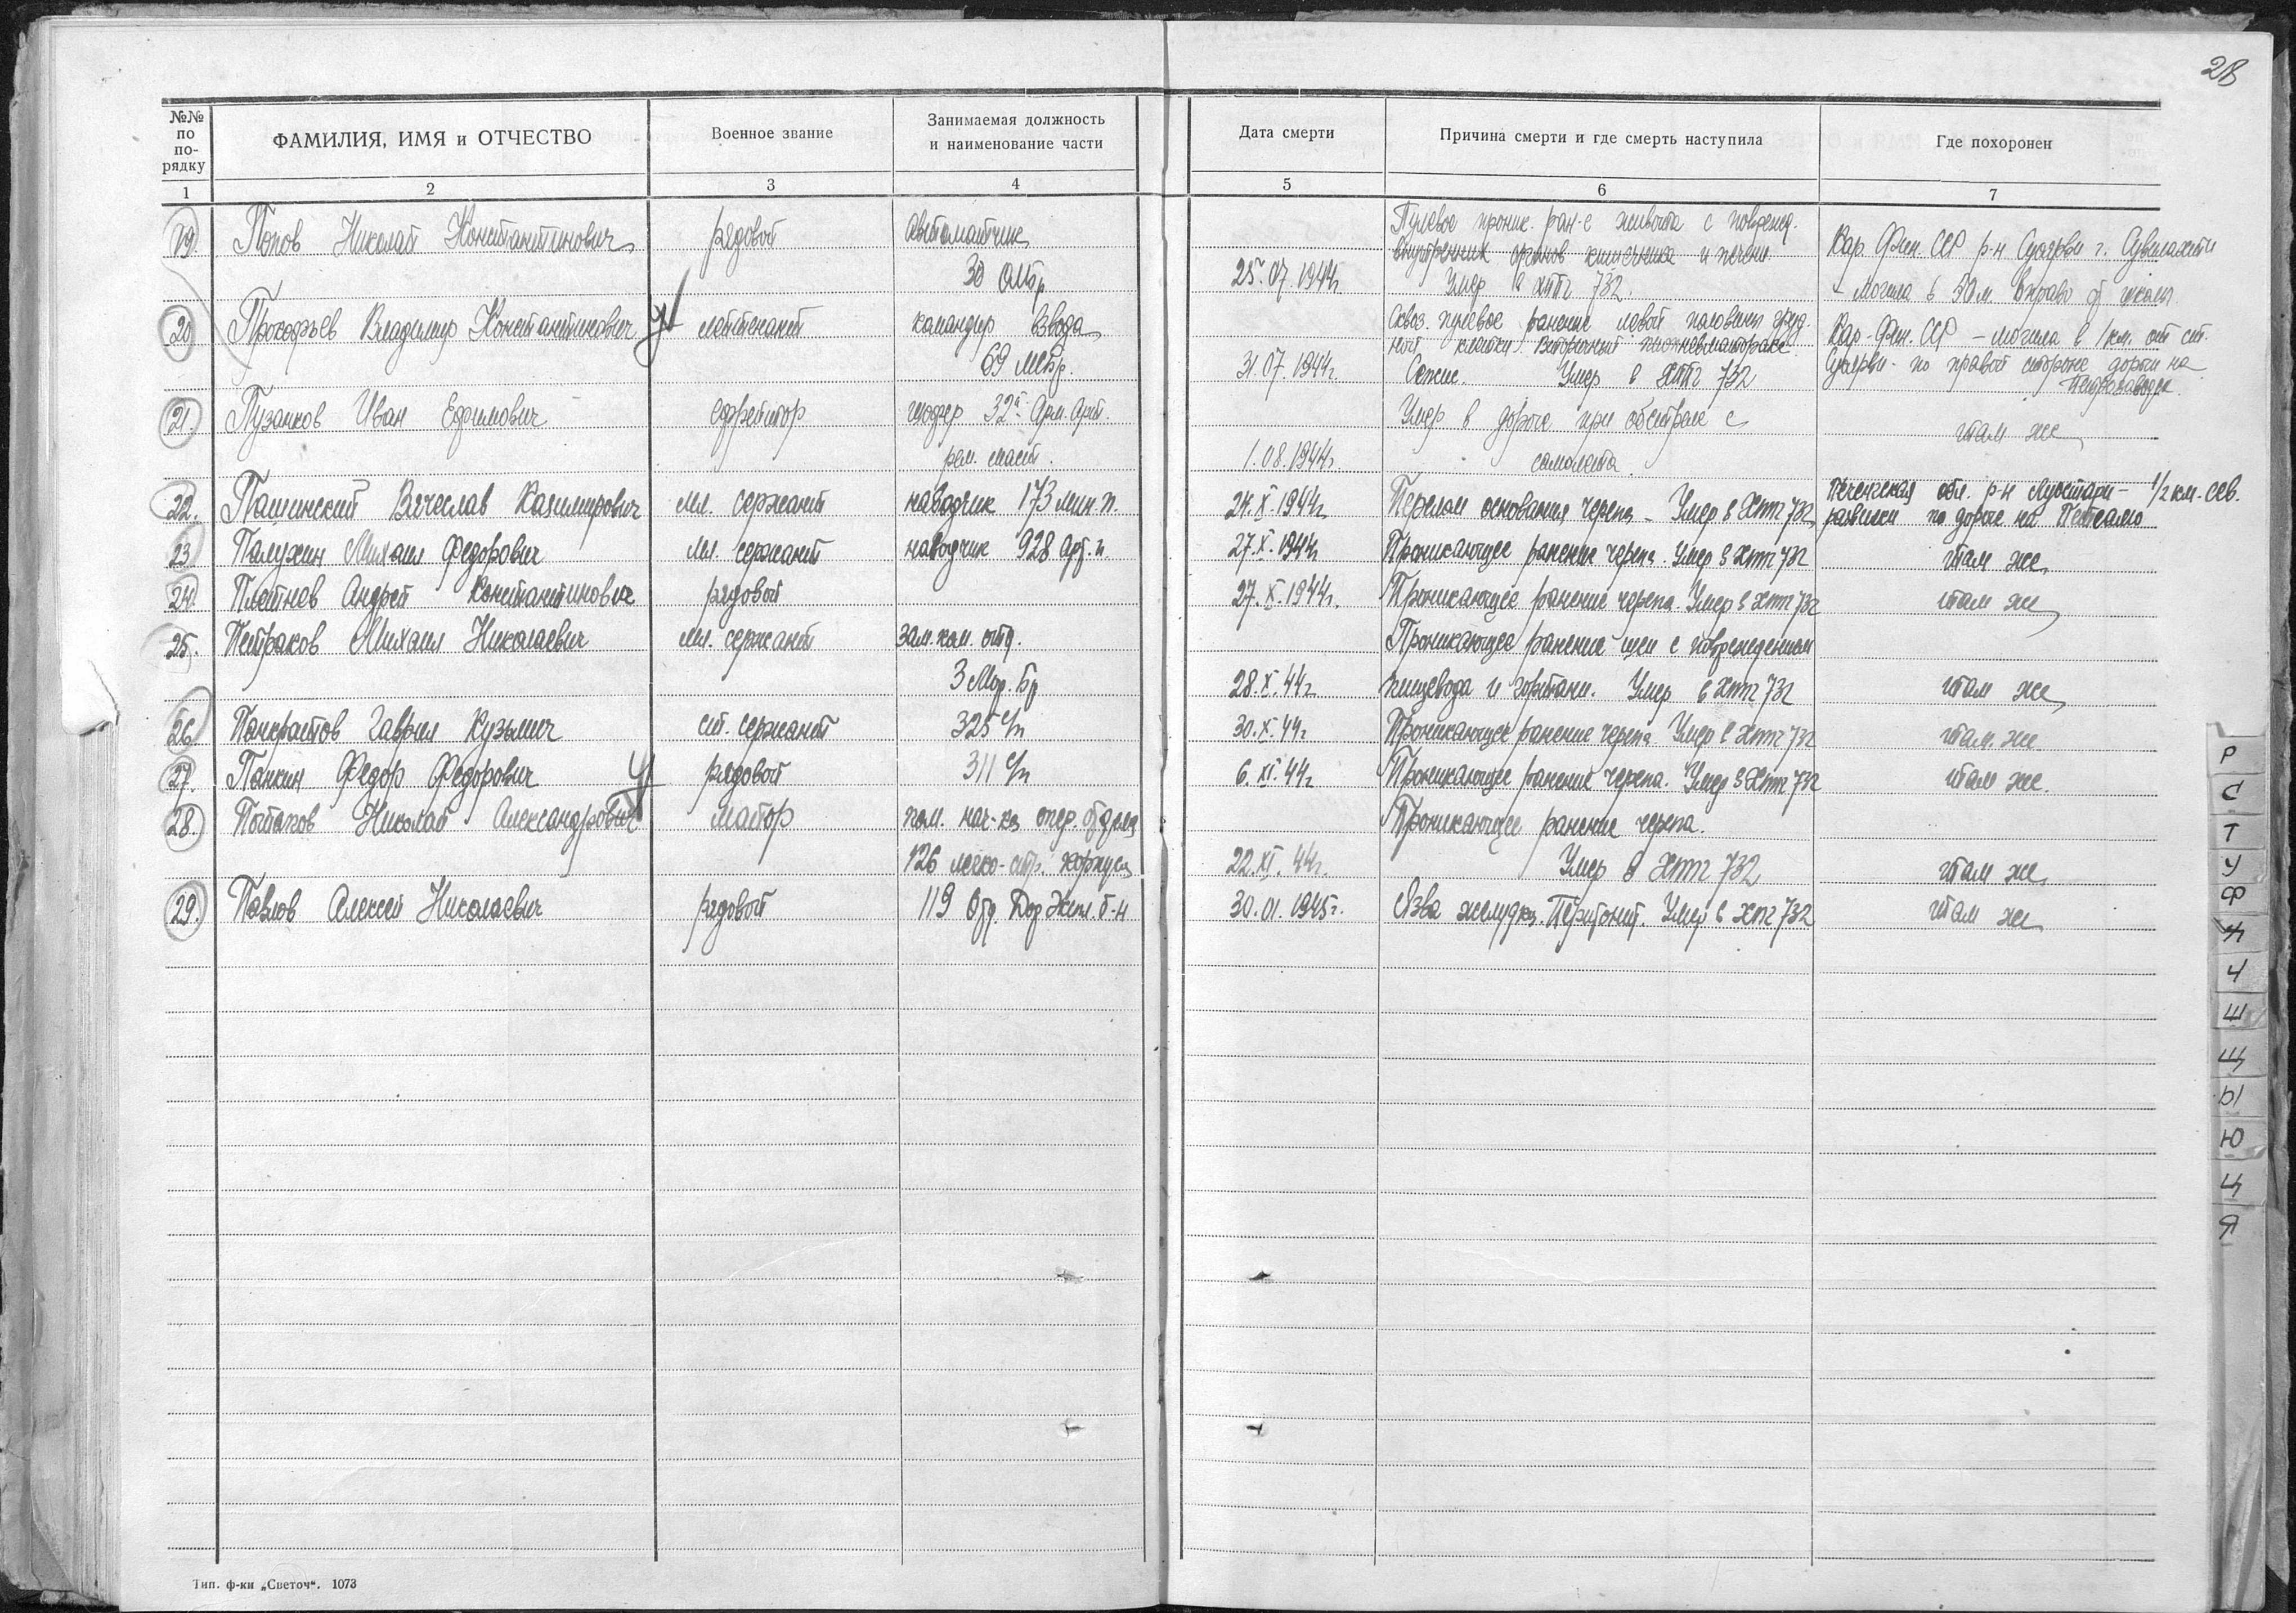 28
№№ по по- рядку
ФАМИЛИЯ, ИМЯ и ОТЧЕСТВО
Военное звание
Занимаемая должность
и наименование части
Дата смерти
Причина смерти и где смерть наступила
Где похоронен
1 2 3 4 5 6 7
19. Попов Николай Константинович рядовой автоматчик Пулевое проник. ран-е живота с поврежд.
внутренних органов кишечника и печени Кар. Фин. ССР р-н Суоярви г.
30 25.07.1944г. Умер в хппг 732. - могила в 50м. вправо от школы
20 Прокофьев Владимир Константинович лейтенант командир взвода Сквоз. пулевое ранение левой половины груд-
ной клетки. Вторичный Кар-Фин. ССР - могила в 1 км. от ст.
69 мсбр. 31.07.1944г. Сепсис. Умер в хппг 732 Суоярви - по правой стороне дороги на
Петрозаводск.
21. Пузанков Иван Ефимович ефрейтор шофер 32й Арм. Арт. Умер в дороге при обстреле с там же
рем. маст. 1.08.1944г. самолета.
22. Пашинский Вячеслав Казимирович мл. сержант наводчик 173 мин. п. 24.X.1944г. Перелом основания черепа - Умер в Хппг 732 Печенгская обл. р-н Луостари - 1/2 км. сев.
развилки по дороге на Петсамо
23 Палухин Михаил Федорович мл. сержант наводчик 928 арт. п. 27.X.1944г. Проникающее ранение черепа. Умер в Хппг 732 там же
24. Плетнев Андрей Константинович рядовой 27.X.1944г. Проникающее ранение черепа. Умер в Хппг 732 там же
25. Петраков Михаил Николаевич мл. сержант зам. ком. отд. Проникающее ранение шеи с повреждением
3 Мор. Бр 28.X.44г. пищевода и гортани. Умер в Хппг 732 там же
26 Панкратов Гаврил Кузьмич ст. сержант 325 с/п 30.X.44г Проникающее ранение черепа Умер в Хппг 732 там же
27. Панкин Федор Федорович рядовой 311 с/п 6.XI.44г Проникающее ранение черепа. Умер в Хппг 732 там же.
28. Потапов Николай Александрович майор пом. нач-ка опер. отдела Проникающее ранение черепа.
126 легко-стр. корпуса 22.XI.44г. Умер в Хппг 732 там же
29. Павлов Алексей Николаевич рядовой 119 Отд. Дор Экспл. б-н 30.01.1945г. Язва желудка. Перитонит. Умер в Хппг 732 там же
Р
С
Т
У
Ф
Ч
Ш
Щ
Ы
Ю
Ц
Я
Тип. ф-ки „Светоч“. 1073